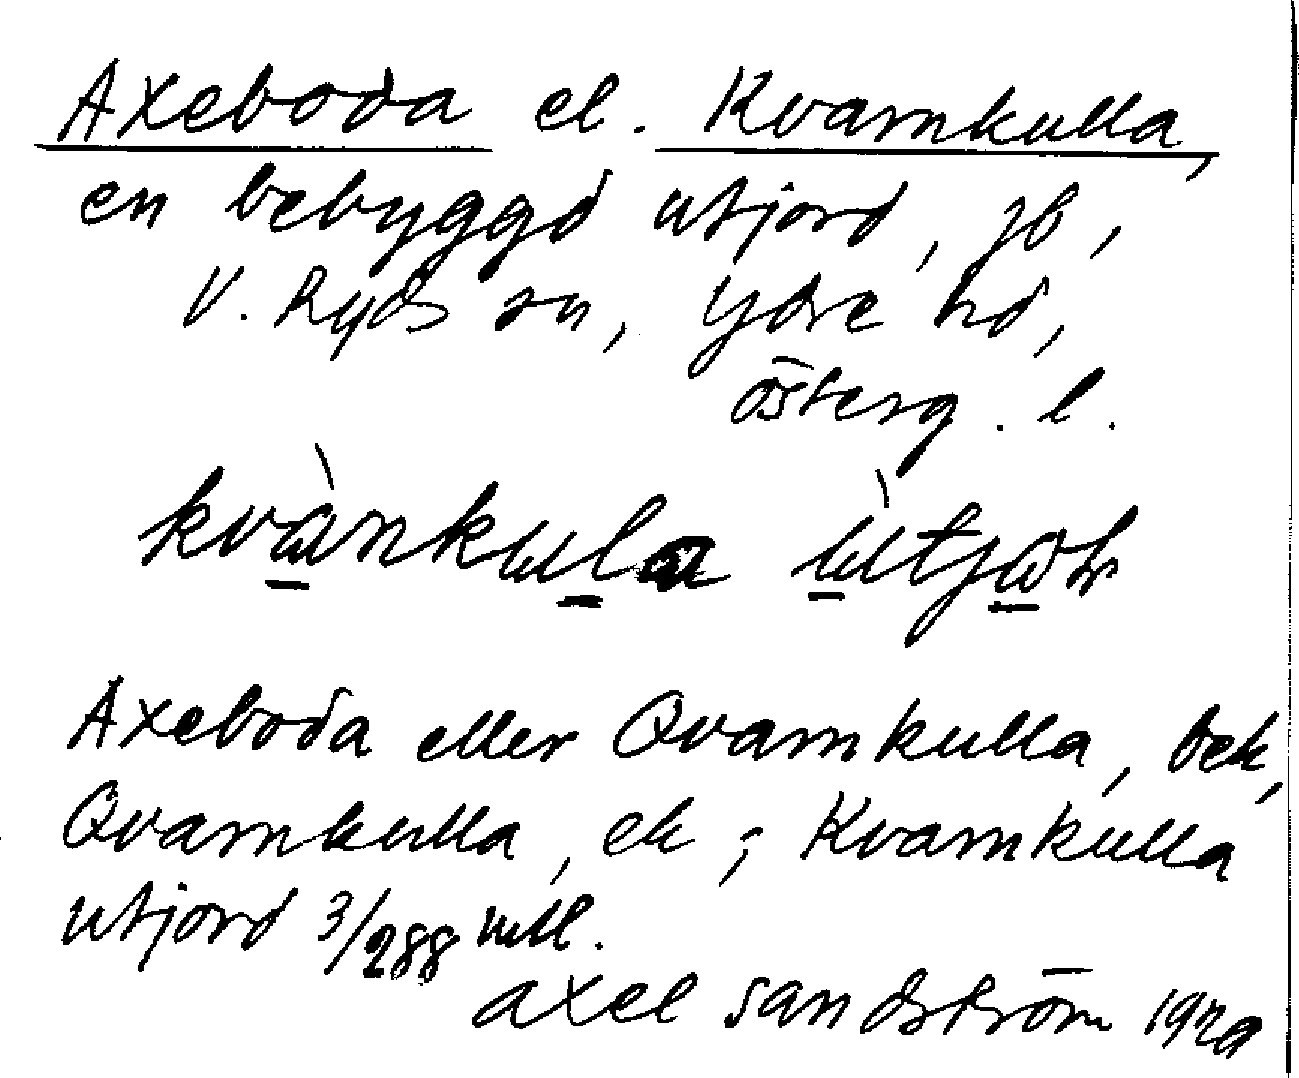 Axeboda el. Kvarnkulla,
en bebyggd utjord, jb,
V. Ryds sn, Ydre hd,
österg. l.
kvànkula ùtjωḷ
Axeboda eller Qvarnkulla, bek,
Qvarnkulla, ek; Kvarnkulla
utjord 3/288 mtl.
axel sandström 1929